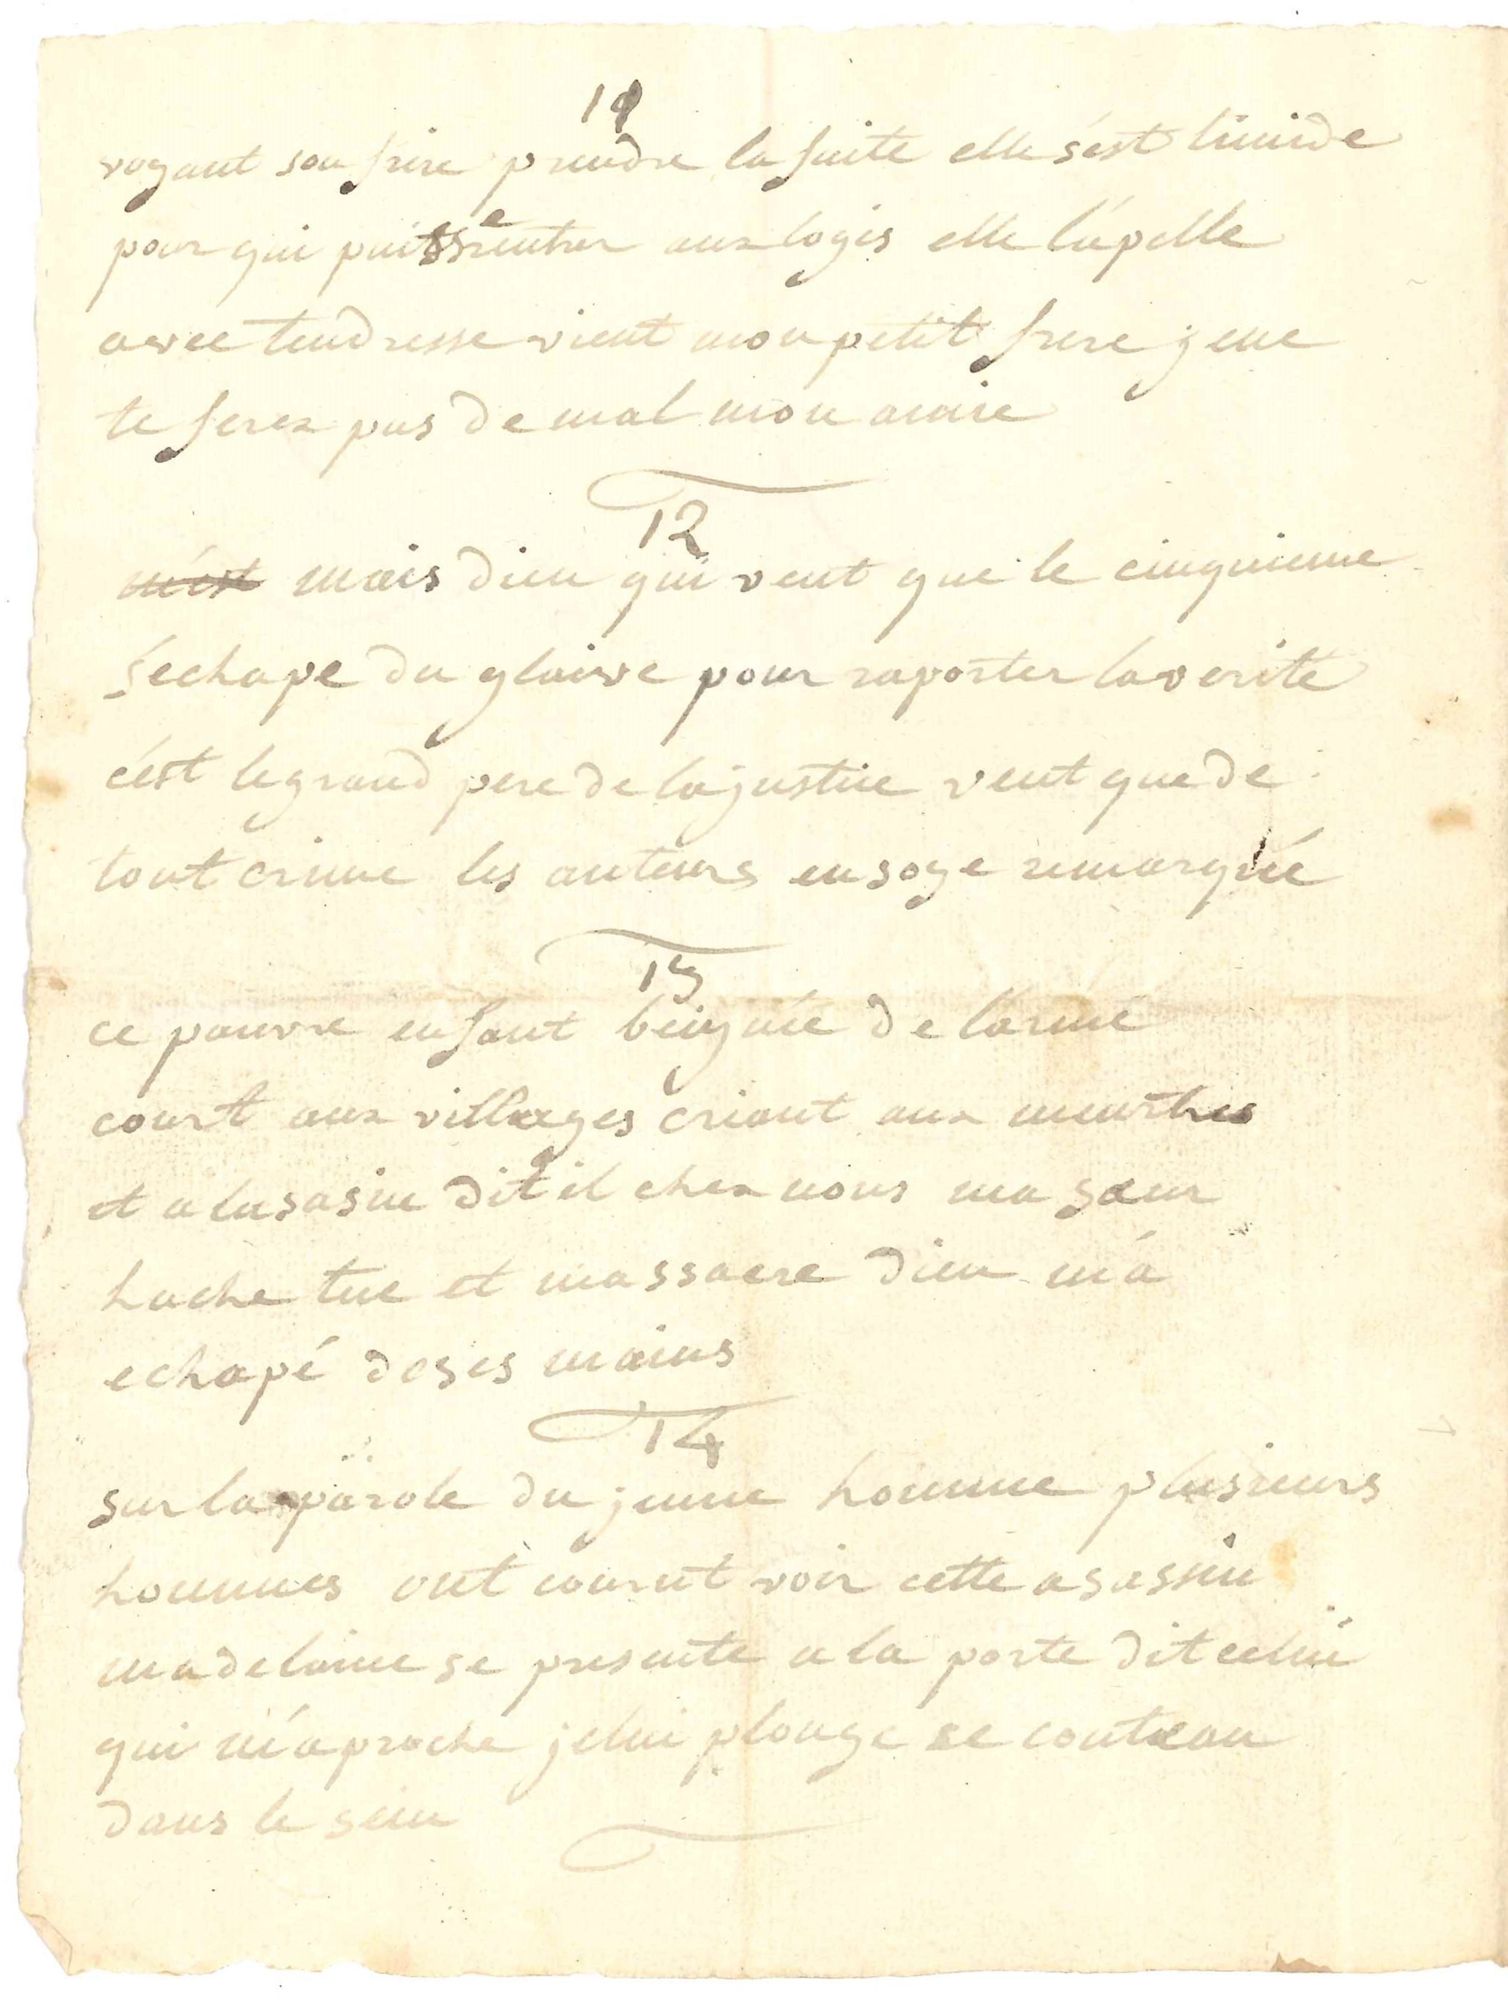 11
voyant son frère prendre la fuite elle s'est timide
pour qui puisse rentrer aux logis elle l'apelle
avec tendresse vient mon petit frere je ne
te ferez pas de mal mon amie
12
mais dieu qui veut que le cinquieme
s'echape du glaive pour raporter la verité
c'est le grand pere de la justice veut que de
tout crime les auteurs en soye remarquéé
13
ce pauvre enfant beignée de larme
court aux villages criant aux meurtres
et a lasasin dit il chez nous ma sœur
hache tue et massacre dieu m'a
echapé de ses mains
14
sur la parole du jeune homme plusieurs
hommes ont courut voir cette asassin
madelaine se presente a la porte dit celui
qui m'aproche je lui plonge ce couteau
dans le sein